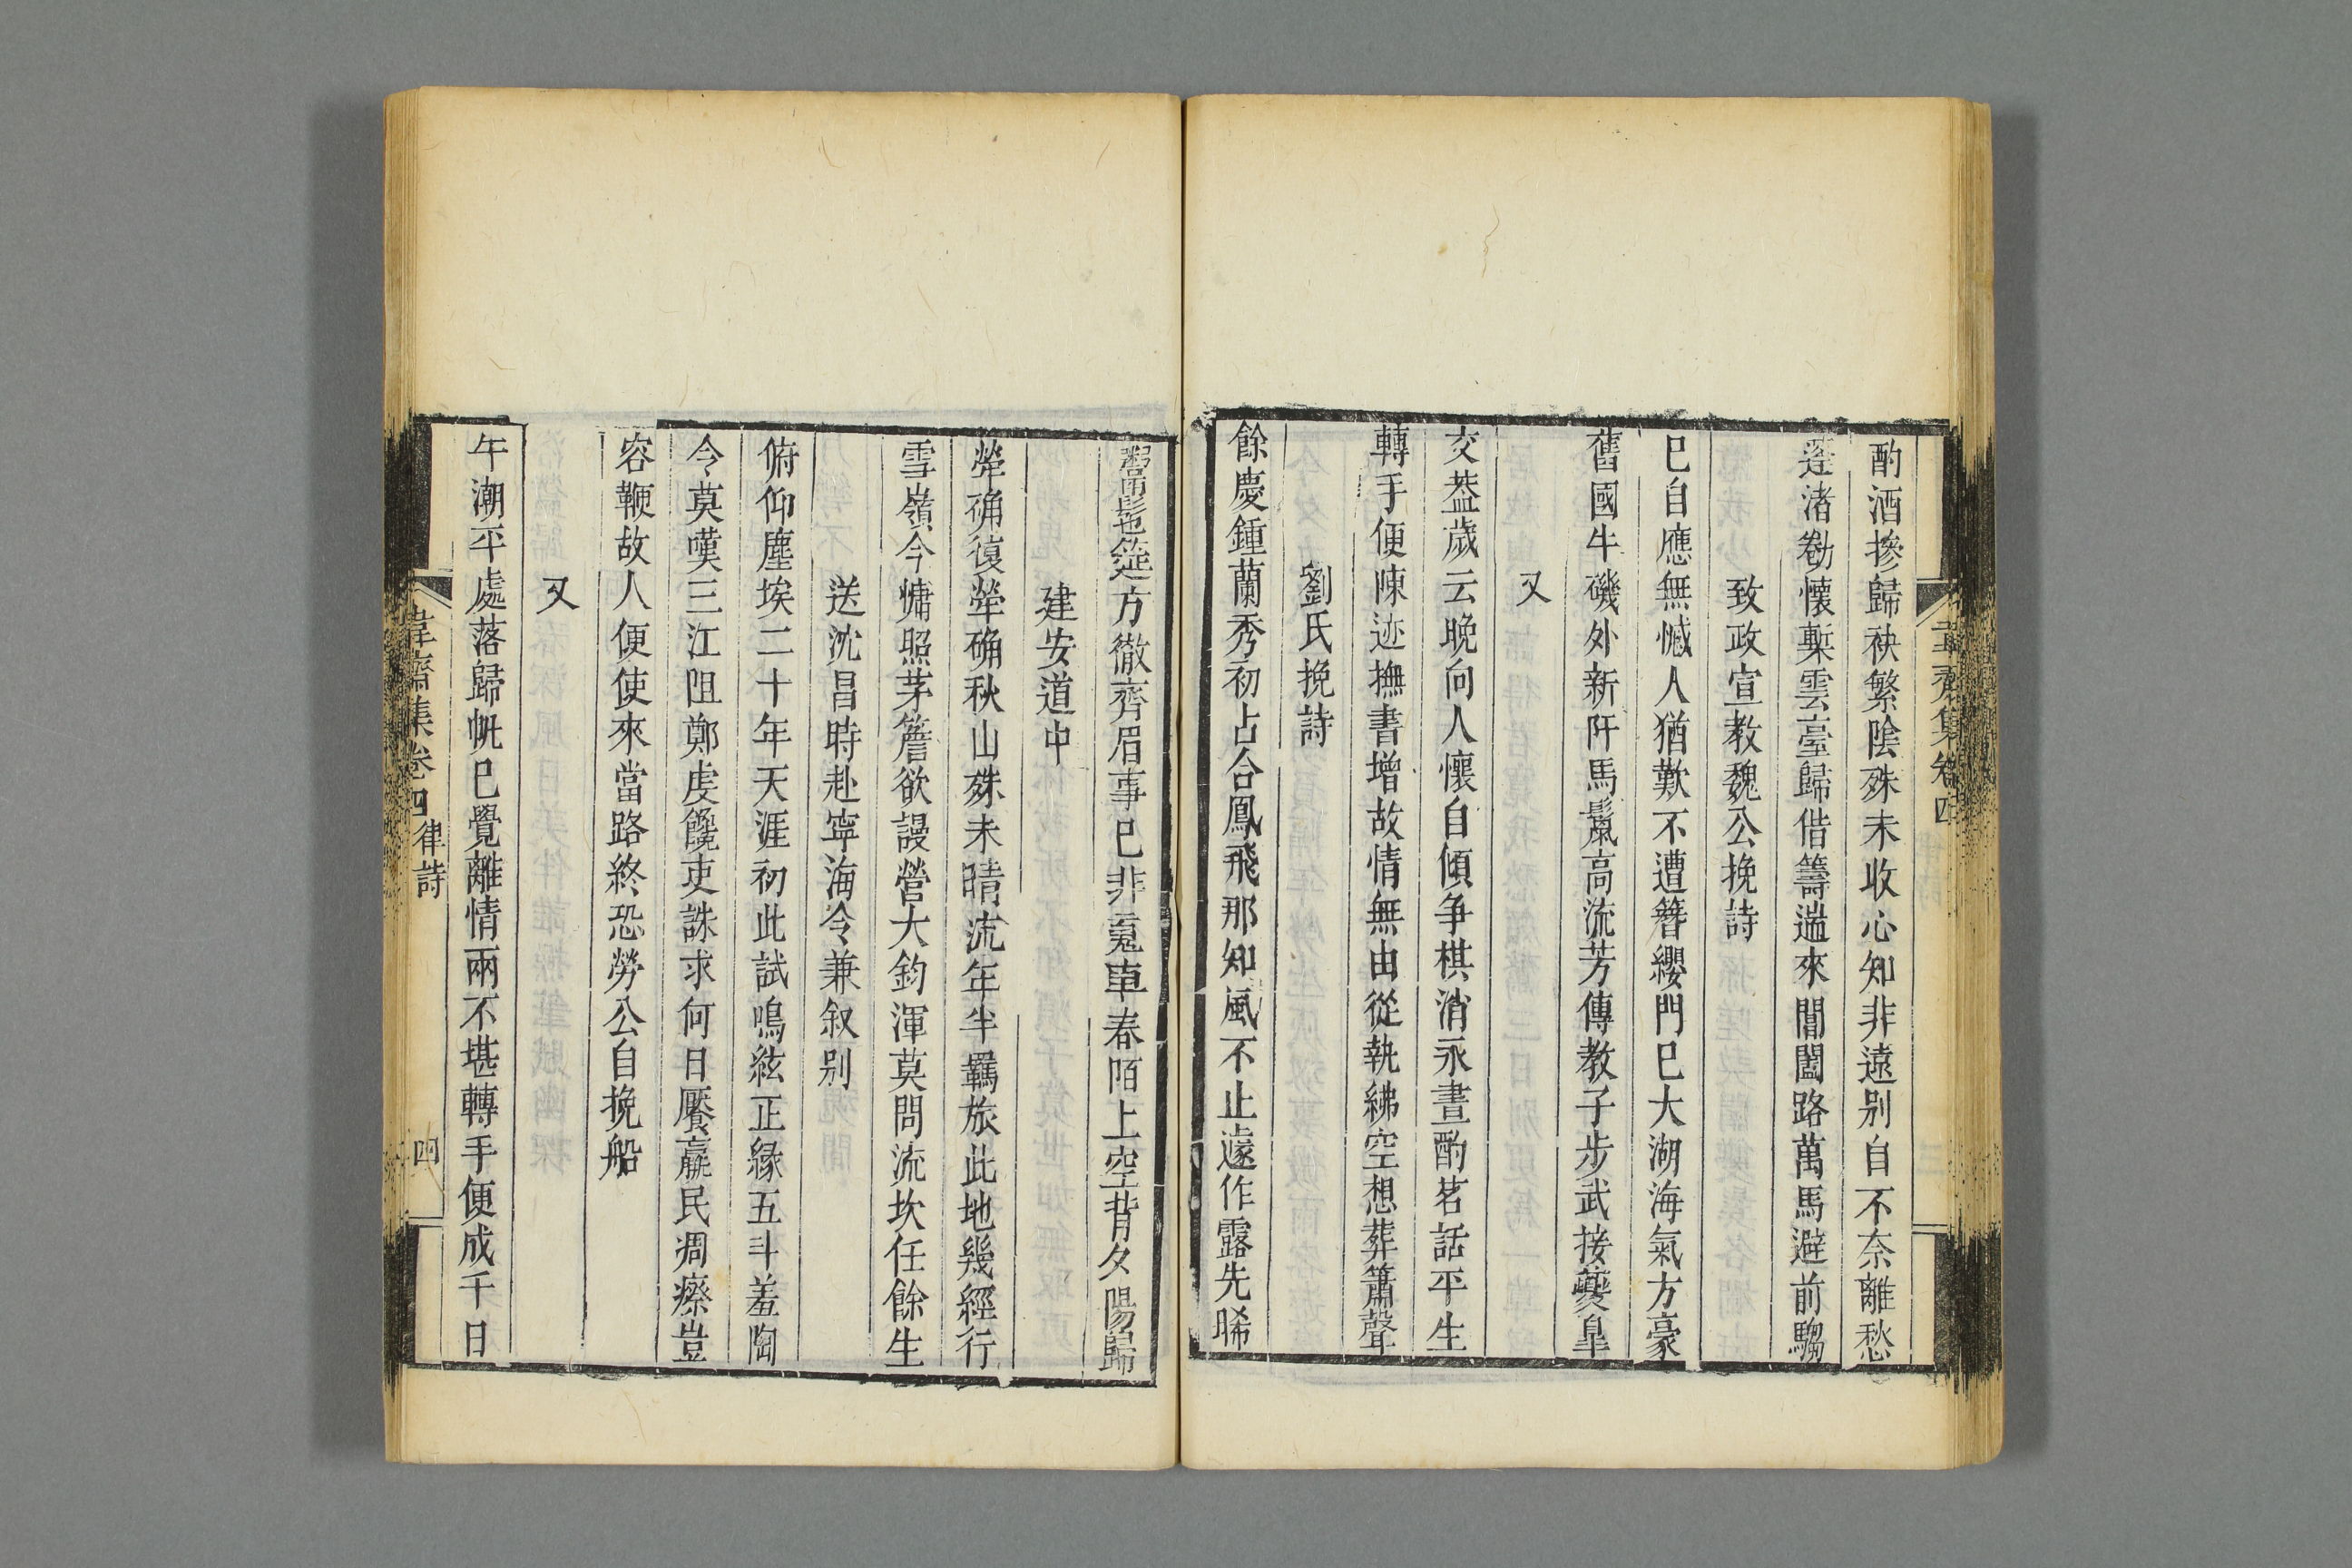 韋齋集卷四
酌酒摻歸袂繁陰殊未收心知非遠别自不奈離愁
蓬渚勌懷槧雲臺歸借籌遄來閶闔路萬馬避前騶
致政宣教魏公挽詩
已自應無憾人猶歎不遭簪纓門已大湖海氣方豪
舊國牛磯外新阡馬鬛高流芳傳教子步武接夔皐
又
交葢歲云晚向人懷自傾争棋消永晝酌茗話平生
轉手便陳迹撫書增故情無由從執紼空想葬簫聲
劉氏挽詩
餘慶鍾蘭秀初占合鳳飛那知風不止遽作露先晞
筵方徹齊眉事已非 車春陌上空背夕陽歸
建安道中
犖确復犖确秋山殊未晴流年半羈旅此地幾經行
雪嶺今慵照茅簷欲謾營大鈞渾莫問流坎任餘生
送沈昌時赴寧海令兼叙别
俯仰塵埃二十年天涯初此試鳴絃正緣五斗羞陶
令莫嘆三江阻鄭虔饞吏誅求何日饜羸民凋瘵豈
容鞭故人便使來當路終恐勞公自挽船
又
午潮平處落歸帆已覺離情兩不堪轉手便成千日
韋齋集卷四 律詩 四